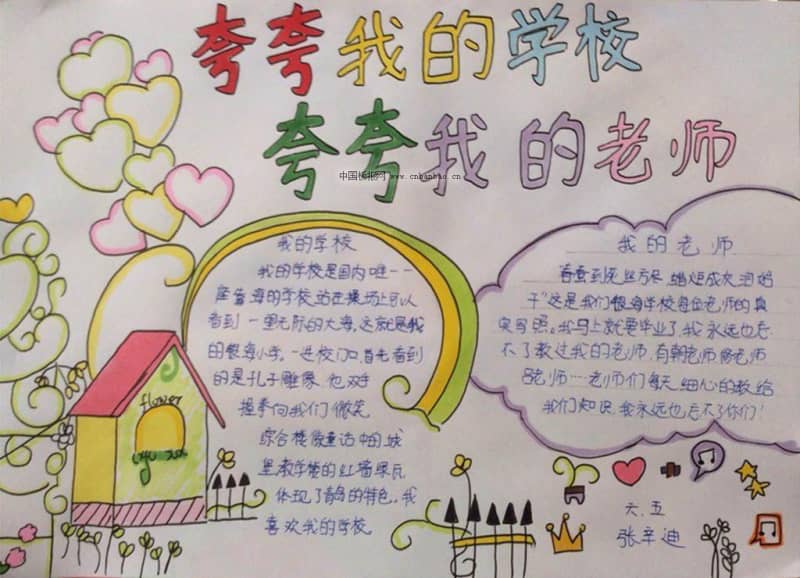 夸夸我的学校
夸夸我的老师
中国板报网 www.cnbanbao.cn
我的学校
我的学校是国内唯一一
座靠海的学校,站在操场上可以
看到一望无际的大海,这就是我
的银海小学。一进校门口,首先看到
的是孔子雕像,他双手
握拳向我们微笑
综合楼像童话中的城
堡,教学楼的红墙绿瓦
体现了青岛的特色。我
喜欢我的学校
我的老师
春蚕到死丝方尽,蜡炬成灰泪始
干"这是我们银海学校每位老师的真
实写照。我马上就要毕业了,我永远也忘
不了教过我的老师,有韩老师
老师……老师们每天细心的教给
我们知识,我永远也忘不了你们!
flower
六.五
张辛迪